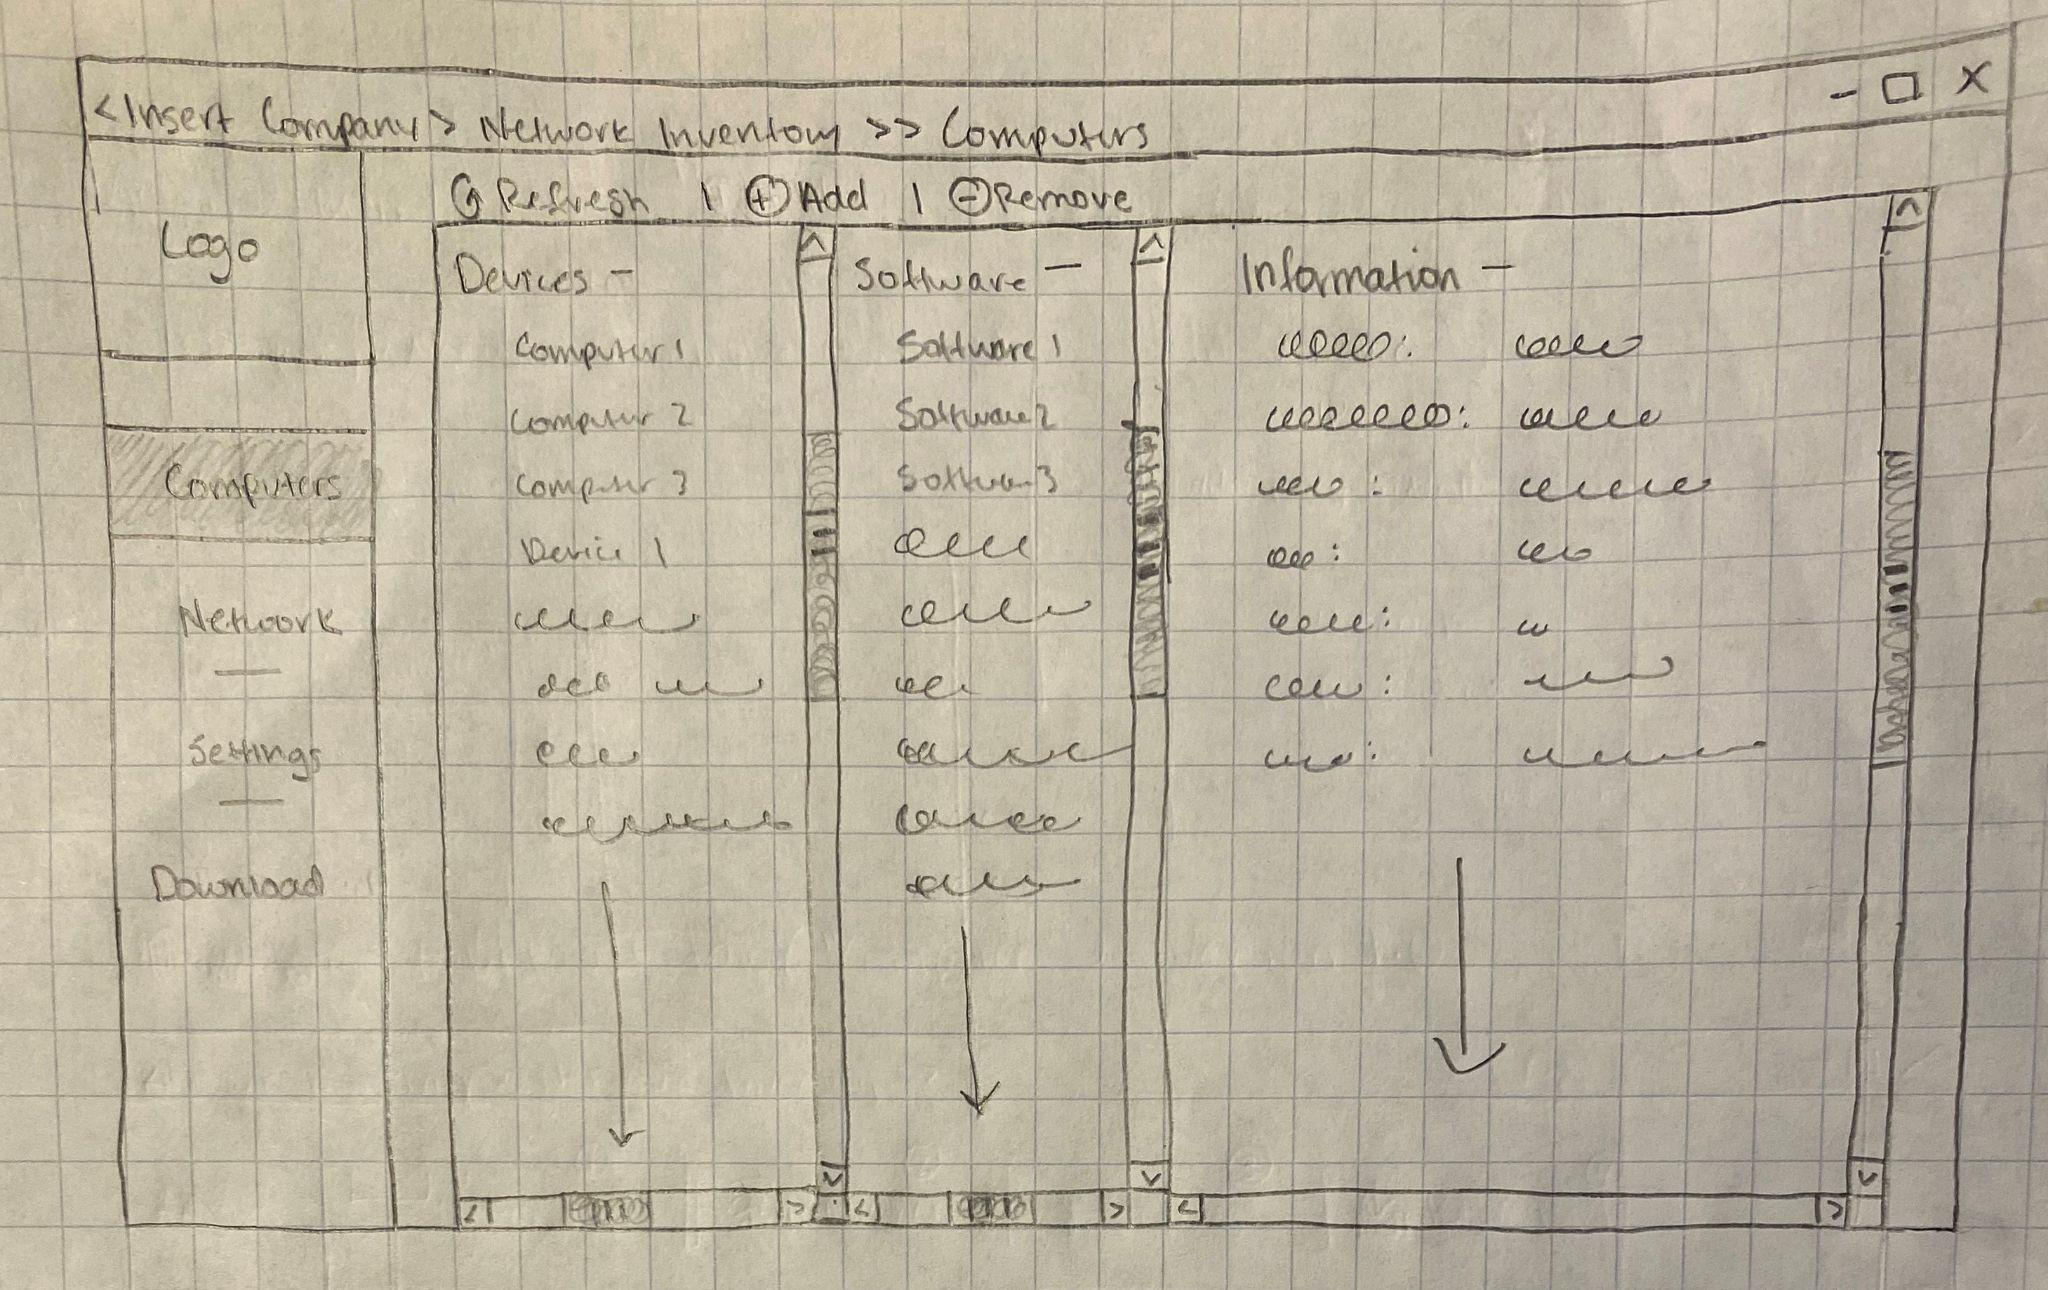 <Insert Company> Network Inventory >> Computers - □ X
Refresh | + Add | - Remove
Logo
Computers
Network
Settings
Download
Devices -
Computer 1
Computer 2
Computer 3
Device 1
Software -
Software 1
Software 2
Software 3
Information -